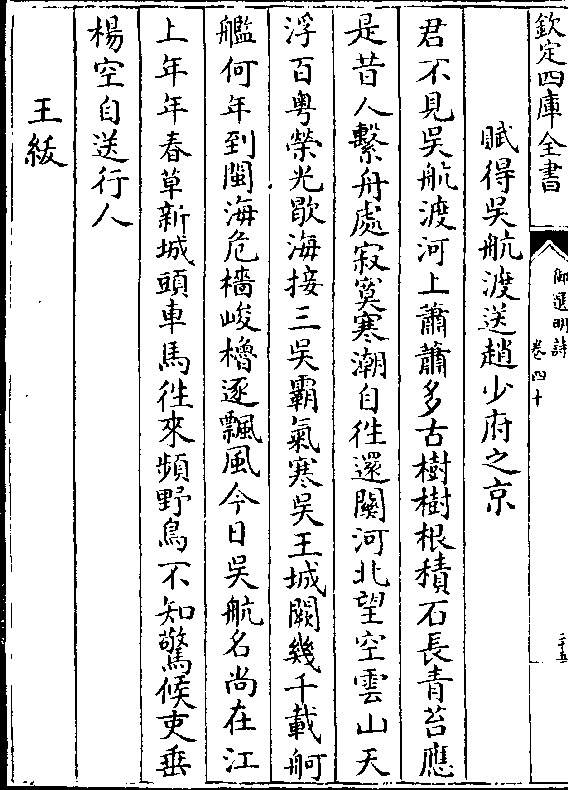 欽定四庫全書
御選明詩
卷四十
二十五
賦得吳航渡送趙少府之京
君不見吳航渡河上蕭蕭多古樹樹根積石長青苔應
是昔人繫舟處寂寞寒潮自往還關河北望空雲山天
浮百粤榮光歇海接三吳霸氣寒吳王城闕幾千載舸
艦何年到閩海危檣峻櫓逐飄風今日吳航名尚在江
上年年春草新城頭車馬徃來頻野鳥不知驚候吏垂
楊空自送行人
王紱